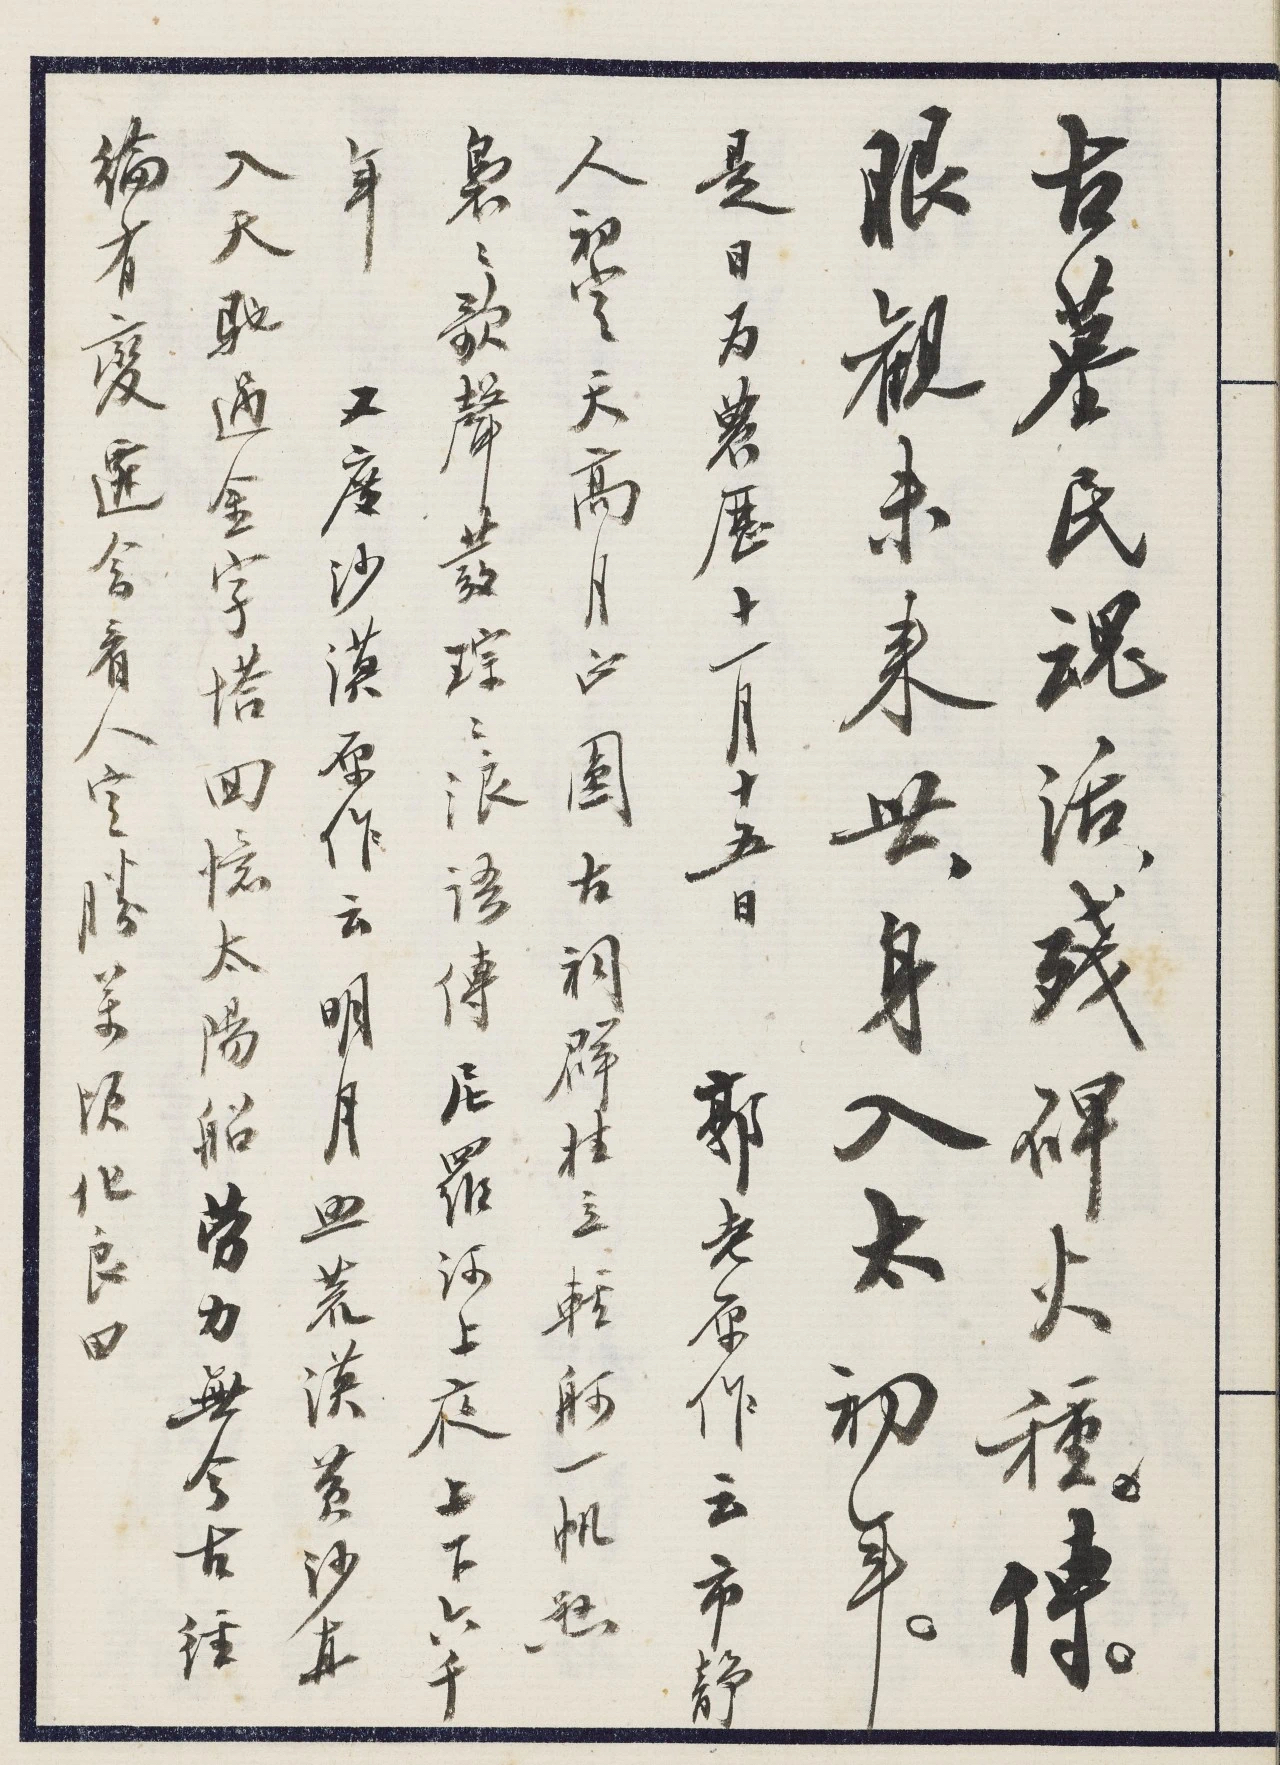 古墓民魂活、殘碑火種。傳。
眼觀未來世、身入太初年。
是日為農歷十一月十五日 郭老原作云市静
人初定天高月正圓古祠群柱立輕舸一帆懸
裊々歌聲發琮々浪語傳尼羅河上夜上下六千
年 又度沙漠原作云明月照荒漠黄沙直
入天馳過金字塔回憶太陽船劳力無今古經
綸有變遷会看人定勝萬頃化良田